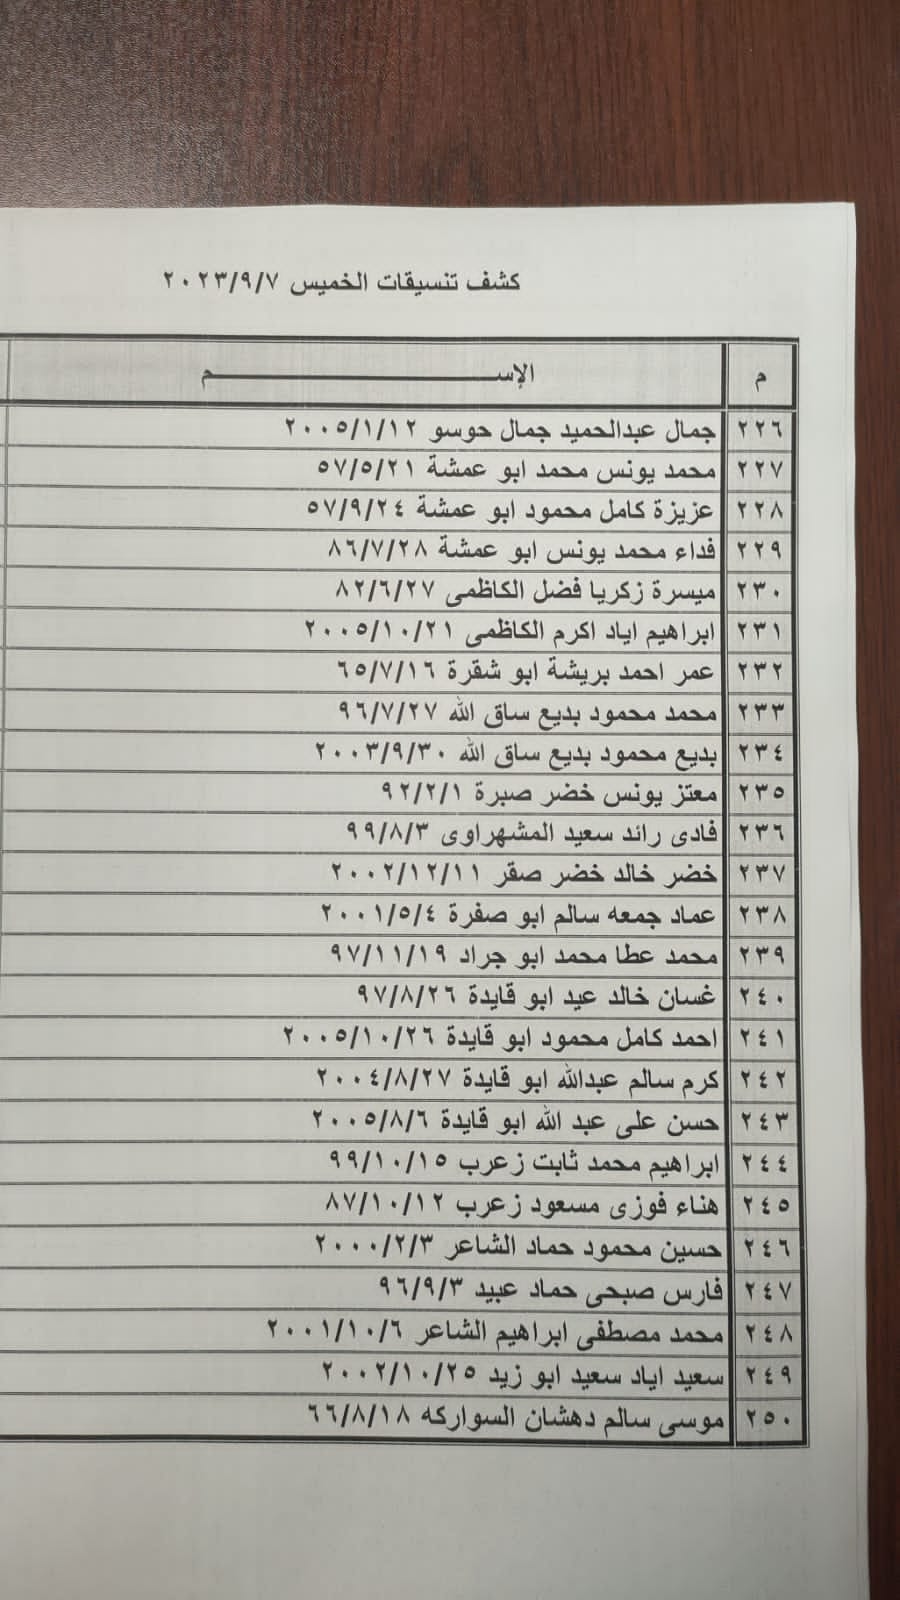 كشف تنسيقات الخميس ٢٠٢٣/٩/٧
م الإســـــــــــــــــــــم
٢٢٦ جمال عبدالحميد جمال حوسو ٢٠٠٥/١/١٢
٢٢٧ محمد يونس محمد ابو عمشة ٥٧/٥/٢١
٢٢٨ عزيزة كامل محمود ابو عمشة ٥٧/٩/٢٤
٢٢٩ فداء محمد يونس ابو عمشة ٨٦/٧/٢٨
٢٣٠ ميسرة زكريا فضل الكاظمى ٨٢/٦/٢٧
٢٣١ ابراهيم اياد اكرم الكاظمى ٢٠٠٥/١٠/٢١
٢٣٢ عمر احمد بريشة ابو شقرة ٦٥/٧/١٦
٢٣٣ محمد محمود بديع ساق الله ٩٦/٧/٢٧
٢٣٤ بديع محمود بديع ساق الله ٢٠٠٣/٩/٣٠
٢٣٥ معتز يونس خضر صبرة ٩٢/٢/١
٢٣٦ فادى رائد سعيد المشهراوى ٩٩/٨/٣
٢٣٧ خضر خالد خضر صقر ٢٠٠٢/١٢/١١
٢٣٨ عماد جمعه سالم ابو صفرة ٢٠٠١/٥/٤
٢٣٩ محمد عطا محمد ابو جراد ٩٧/١١/١٩
٢٤٠ غسان خالد عيد ابو قايدة ٩٧/٨/٢٦
٢٤١ احمد كامل محمود ابو قايدة ٢٠٠٥/١٠/٢٦
٢٤٢ كرم سالم عبدالله ابو قايدة ٢٠٠٤/٨/٢٧
٢٤٣ حسن على عبد الله ابو قايدة ٢٠٠٥/٨/٦
٢٤٤ ابراهيم محمد ثابت زعرب ٩٩/١٠/١٥
٢٤٥ هناء فوزى مسعود زعرب ٨٧/١٠/١٢
٢٤٦ حسين محمود حماد الشاعر ٢٠٠٠/٢/٣
٢٤٧ فارس صبحى حماد عبيد ٩٦/٩/٣
٢٤٨ محمد مصطفى ابراهيم الشاعر ٢٠٠١/١٠/٦
٢٤٩ سعيد اياد سعيد ابو زيد ٢٠٠٢/١٠/٢٥
٢٥٠ موسى سالم دهشان السواركه ٦٦/٨/١٨